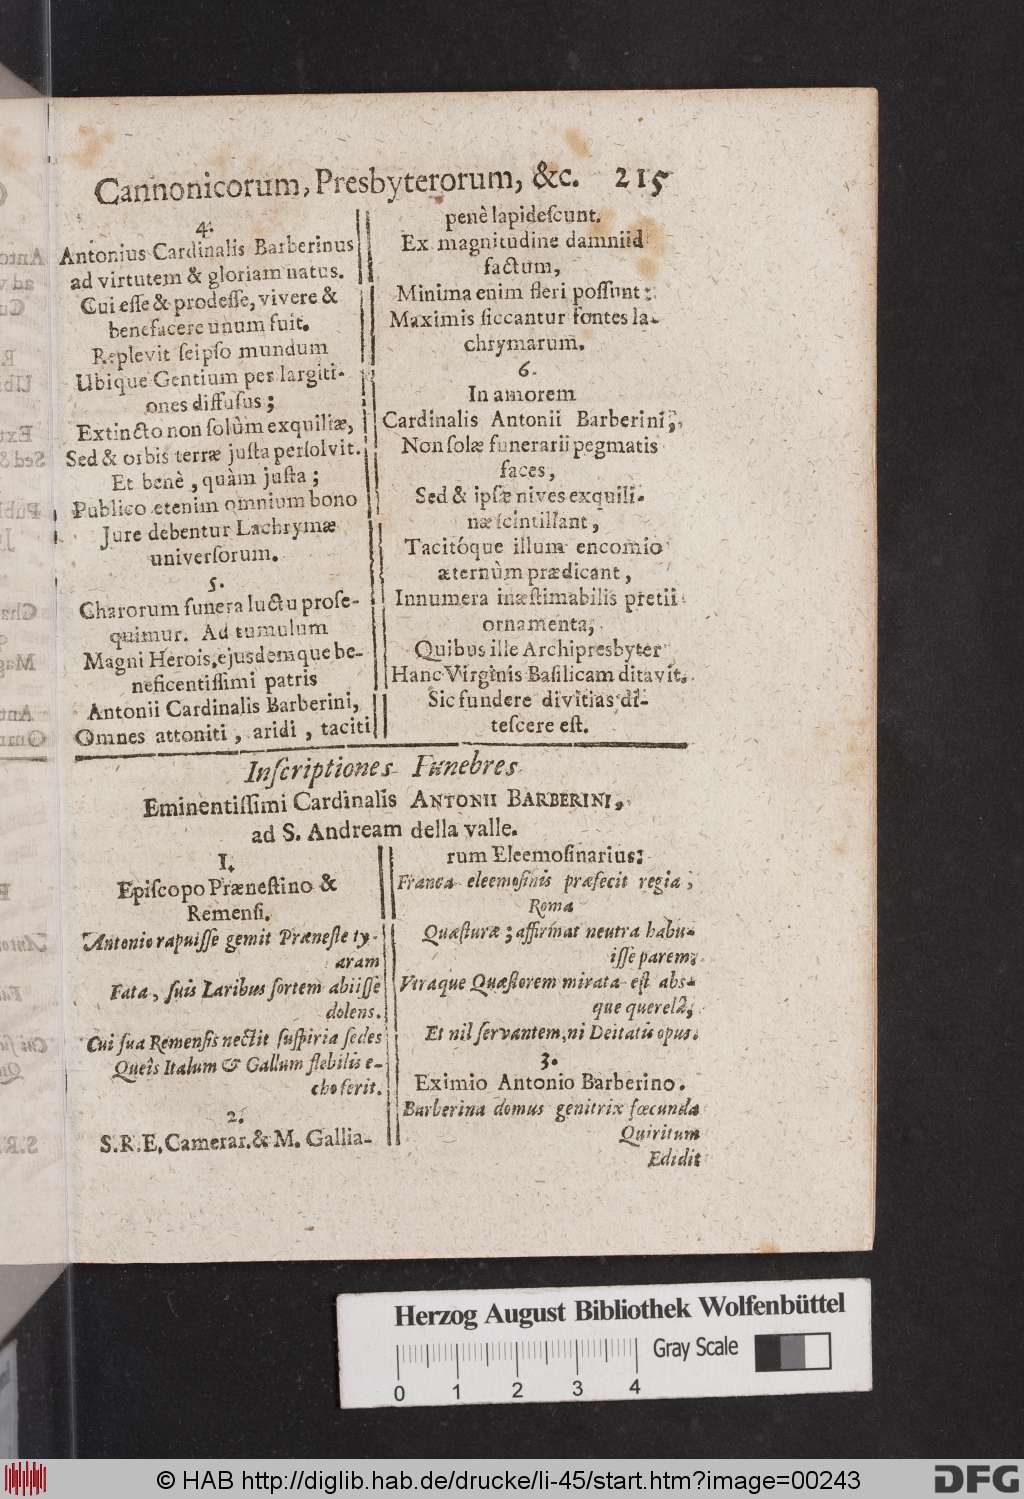 Cannonicorum, Presbyterorum, &c. 215
4.
Antonius Cardinalis Barberinus
ad virtutem & gloriam natus.
Cui eſſe & prodeſſe, vivere &
benefacere unum fuit.
Replevit ſeipſo mundum
Ubique Gentium per largiti-
ones diffuſus;
Extincto non ſolùm exquiliæ,
Sed & orbis terræ juſta perſolvit.
Et benè, quàm juſta;
Publico etenim omnium bono
Jure debentur Lachrymæ
univerſorum.
5.
Charorum funera luctu proſe-
quimur. Ad tumulum
Magni Herois, ejusdemque be-
neficentiſſimi patris
Antonii Cardinalis Barberini,
Omnes attoniti, aridi, taciti
penè lapideſcunt.
Ex magnitudine damni id
factum,
Minima enim fleri poſſunt:
Maximis ſiccantur fontes la-
chrymarum.
6.
In amorem
Cardinalis Antonii Barberini,
Non ſolæ funerarii pegmatis
faces,
Sed & ipſæ nives exquili-
næ ſcintillant,
Tacitóque illum encomio
æternùm prædicant,
Innumera inæſtimabilis pretii
ornamenta,
Quibus ille Archipresbyter
Hanc Virginis Baſilicam ditavit.
Sic fundere divitias di-
teſcere eſt.
Inſcriptiones Funebres
Eminentiſſimi Cardinalis ANTONII BARBERINI,
ad S. Andream della valle.
1.
Epiſcopo Præneſtino &
Remenſi.
Antonio rapuiſſe gemit Præneſte ty-
aram
Fata, ſuis Laribus ſortem abiiſſe
dolens.
Cui ſua Remenſis nectit ſuſpiria ſedes
Queîs Italum & Gallum flebilis e-
cho ferit.
2.
S.R.E. Camerar. & M. Gallia-
rum Eleemoſinarius:
Franca eleemoſinis præfecit regia,
Roma
Quæſturæ; affirmat neutra habu-
iſſe parem;
Utraque Quæſtorem mirata eſt abs-
que querelâ,
Et nil ſervantem, ni Deitatis opus.
3.
Eximio Antonio Barberino.
Barberina domus genitrix fœcunda
Quiritum
Edidit
Herzog August Bibliothek Wolfenbüttel
Gray Scale
0 1 2 3 4
© HAB http://diglib.hab.de/drucke/li-45/start.htm?image=00243
DFG